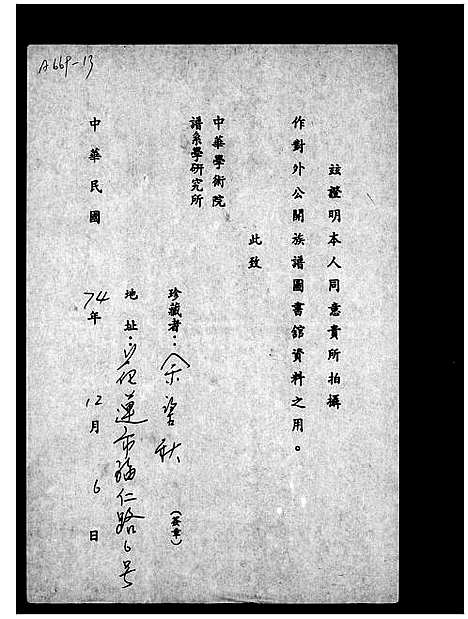 A669-13
茲證明本人同意貴所拍攝
作對外公開族譜圖書館資料之用。
此致
中華學術院
譜系學研究所
珍藏者：余 秋 (簽章)
地址：花蓮市福仁路6号
中華民國 74年 12月 6日